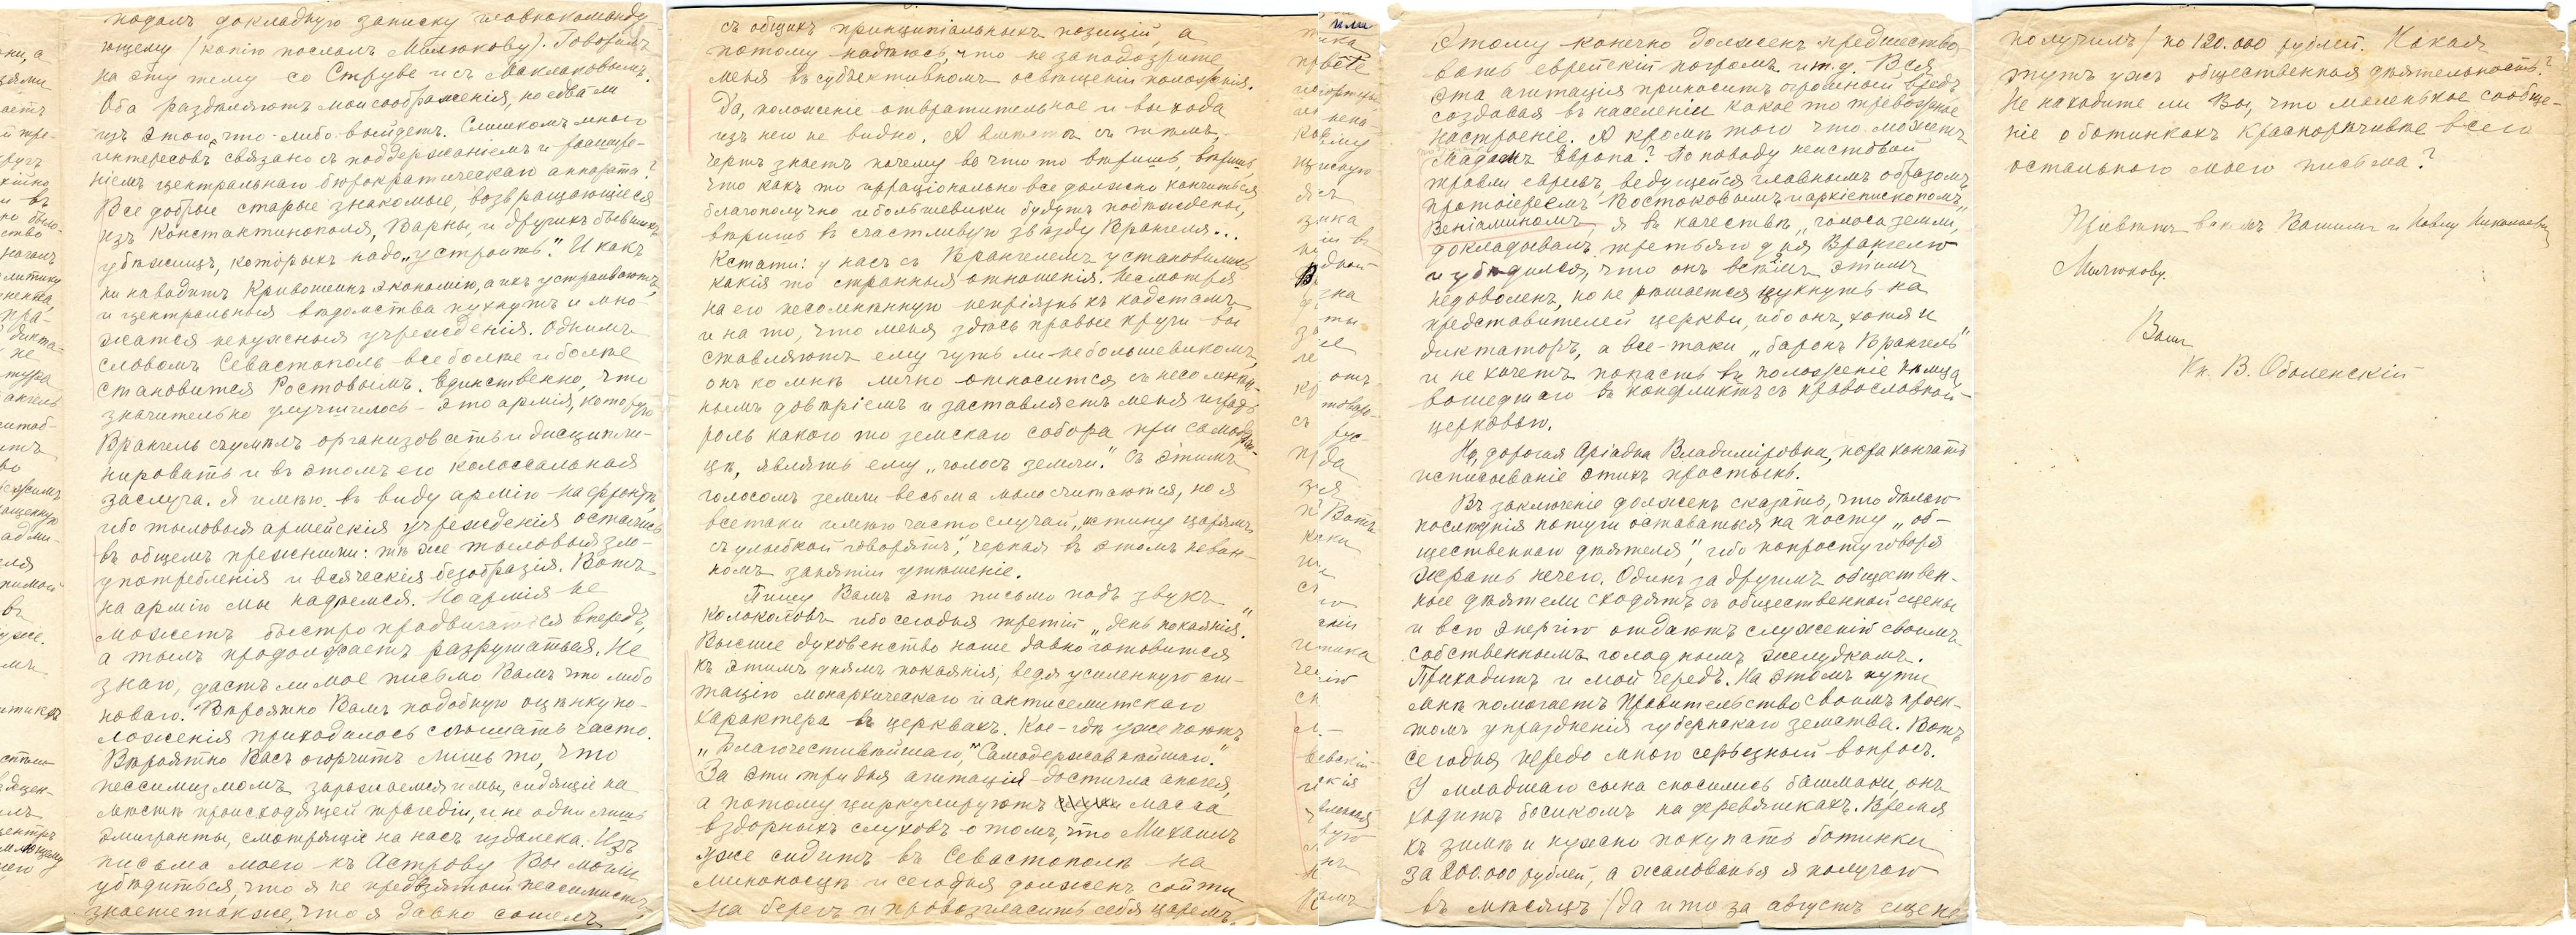 подалъ докладную записку главнокоманду-
ющему (копію послалъ Милюкову). Говорилъ
на эту тему со Струве и съ Маклаковымъ.
Оба раздѣляютъ мои соображенія, но едва ли
изъ этого что-либо выйдетъ. Слишкомъ много
интересовъ связано съ поддержаніемъ и расшире-
ніемъ центральнаго бюрократическаго аппарата?
Все добрые старые знакомые, возвращающіеся
изъ Константинополя, Варны, и другихъ бывшихъ
убѣжищъ, которыхъ надо „устроить". И какъ
ни наводитъ Кривошеинъ экономію, а ихъ устраиваютъ,
и центральныя вѣдомства пухнутъ и мно-
жатся ненужныя учрежденія. Однимъ
словомъ Севастополь все болѣе и болѣе
становится Ростовомъ. Единственно, что
значительно улучшилось - это армія, которую
Врангель сумѣлъ организовать и дисципли-
нировать и въ этомъ его колоссальная
заслуга. Я имѣю въ виду армію на фронтѣ,
ибо тыловыя армейскія учрежденія остались
въ общемъ прежними: тѣ же тыловыя зло-
употребленія и всяческія безобразія. Вотъ
на армію мы надѣемся. Но армія не
можетъ быстро продвигаться впередъ,
а тылъ продолжаетъ разрушаться. Не
знаю, дастъ ли мое письмо Вамъ что либо
новаго. Вѣроятно Вамъ подобную оцѣнку по-
ложенія приходилось слышать часто.
Вѣроятно Васъ огорчитъ лишь то, что
пессимизмомъ заражаемся и мы, сидящіе на
мѣстѣ происходящей трагедіи, и не одни лишь
эмигранты, смотрящіе на насъ издалека. Изъ
письма моего къ Астрову Вы могли
убѣдиться, что я не предвзятый пессимистъ,
знаете также, что я давно сошелъ
съ общихъ принципіальныхъ позицій, а
потому надѣюсь, что не заподозрите
меня въ субъективномъ освѣщеніи положенія.
Да, положеніе отвратительное и выхода
изъ него не видно. А вмѣстѣ съ тѣмъ,
чертъ знаетъ почему во что то вѣришь, вѣришь,
что какъ то ирраціонально все должно кончиться
благополучно и большевики будутъ побѣждены,
вѣришь въ счастливую звѣзду Врангеля...
Кстати: у насъ съ Врангелемъ установились
какія то странныя отношенія. Несмотря
на его несомнѣнную непріязнь къ кадетамъ
и на то, что меня здѣсь правые круги вы
ставляютъ ему чуть ли не большевикомъ,
онъ ко мнѣ лично относится съ несомнѣн-
нымъ довѣріемъ и заставляетъ меня играть
роль какого то земскаго собора при самодерж-
цѣ, являть ему „голосъ земли." Съ этимъ
голосомъ земли весьма мало считаются, но я
всетаки имѣю часто случай „истину царямъ
съ улыбкой говорить", черпая въ этомъ неваж-
номъ занятіи утѣшеніе.
Пишу Вамъ это письмо подъ звукъ
колоколовъ ибо сегодня третій „день покаянія."
Высшее духовенство наше давно готовится
къ этимъ днямъ покаянія, ведя усиленную аги-
тацію монархическаго и антисемитскаго
характера въ церквахъ. Кое-гдѣ уже поютъ
„Благочестивѣйшаго", „Самодержавнѣйшаго".
За эти три дня агитація достигла апогея,
а потому циркулируютъ масса
вздорныхъ слуховъ о томъ, что Михаилъ
уже сидитъ въ Севастополѣ на
миноносцѣ и сегодня долженъ сойти
на берегъ и провозгласить себя царемъ.
Этому конечно долженъ предшество-
вать еврейскій погромъ и т.д. Вся
эта агитація приноситъ огромный вредъ
создавая въ населеніи какое то тревожное
настроеніе. А кромѣ того что можетъ
Мадамъ Европа? По поводу неистовой
травли евреевъ, ведущейся главнымъ образомъ
протоіереемъ Востоковымъ и архіепископомъ
Веніаминомъ, я въ качествѣ „голоса земли"
докладывалъ третьяго дня Врангелю
и убѣдился, что онъ всѣмъ этимъ
недоволенъ, но не рѣшается цукнуть на
представителей церкви, ибо онъ, хотя и
диктаторъ, а все-таки „баронъ Врангель"
и не хочетъ попасть въ положеніе нѣмца,
вошедшаго въ конфликтъ съ православной
церковью.
Но, дорогая Аріадна Владиміровна, пора кончать
исписываніе этихъ простынь.
Въ заключеніе долженъ сказать, что дѣлаю
послѣднія потуги оставаться на посту „об-
щественнаго дѣятеля", ибо попросту говоря
жрать нечего. Одинъ за другимъ обществен-
ные дѣятели сходятъ съ общественной сцены
и всю энергію отдаютъ служенію своимъ
собственнымъ голоднымъ желудкамъ.
Приходитъ и мой чередъ. На этомъ пути
мнѣ помогаетъ Правительство своимъ проек-
томъ упраздненія губернскаго земства. Вотъ
сегодня передо мною серьезный вопросъ.
У младшаго сына сносились башмаки, онъ
ходитъ босикомъ на деревяшкахъ. Время
къ зимѣ и нужно покупать ботинки
за 200.000 рублей, а жалованья я получаю
въ мѣсяцъ (да и то за августъ еще не
получилъ) по 120.000 рублей. Какая
тутъ ужъ общественная дѣятельность?
Не находите ли Вы, что маленькое сообще-
ніе о ботинкахъ краснорѣчивѣе всего
остального моего письма?
Привѣтъ всѣмъ Вашимъ и Павлу Николаевичу
Милюкову.
Вашъ
Кн. В. Оболенскій